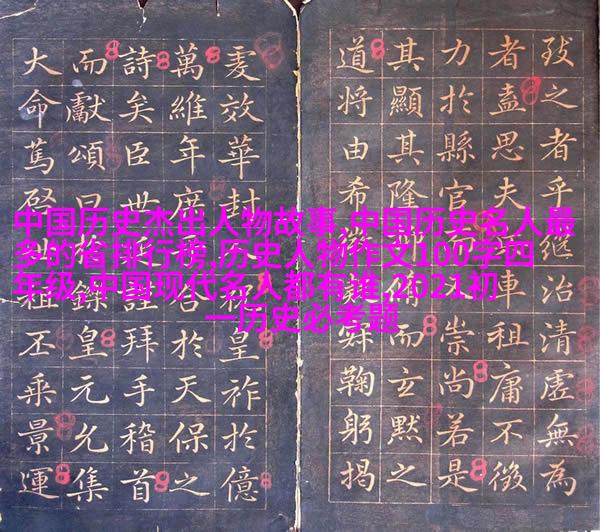 中国历史杰出人物故事,中国历史名人最
多的省排行榜,历史人物作文100字四
年级,中国现代名人都有谁,2021初
一历史必考题
致之者乎繼治清虛無為
者盍思夫車租庸不徵
力於縣官而崇尚若是
其顯其隆而玄默之
道將由希鞠躬揭
效華封皇祚於億
萬維年於天保之
詩矣臣世拜手稽首
而獻頌曰皇元允集
大命篤丕乘景運